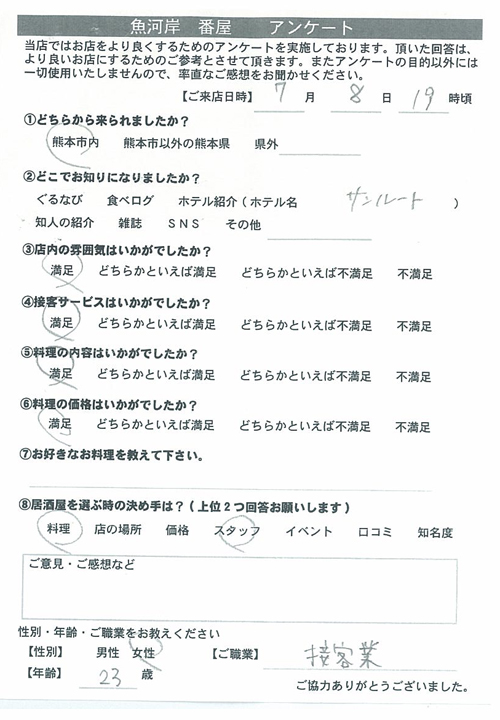 魚河岸 番屋 アンケート
当店ではお店をより良くするためのアンケートを実施しております。頂いた回答は、
より良いお店にするためのご参考とさせて頂きます。またアンケートの目的以外には
一切使用いたしませんので、率直なご感想をお聞かせください。
【ご来店日時】 7 月 8 日 19 時頃
①どちらから来られましたか?
熊本市内 熊本市以外の熊本県 県外
②どこでお知りになりましたか?
ぐるなび 食べログ ホテル紹介(ホテル名 サンルート )
知人の紹介 雑誌 SNS その他
③店内の雰囲気はいかがでしたか?
満足 どちらかといえば満足 どちらかといえば不満足 不満足
④接客サービスはいかがでしたか?
満足 どちらかといえば満足 どちらかといえば不満足 不満足
⑤料理の内容はいかがでしたか?
満足 どちらかといえば満足 どちらかといえば不満足 不満足
⑥料理の価格はいかがでしたか?
満足 どちらかといえば満足 どちらかといえば不満足 不満足
⑦お好きなお料理を教えて下さい。
⑧居酒屋を選ぶ時の決め手は?(上位2つ回答お願いします)
料理 店の場所 価格 スタッフ イベント 口コミ 知名度
ご意見・ご感想など
性別・年齢・ご職業をお教えください
【性別】 男性 女性 【ご職業】 接客業
【年齢】 23 歳
ご協力ありがとうございました。